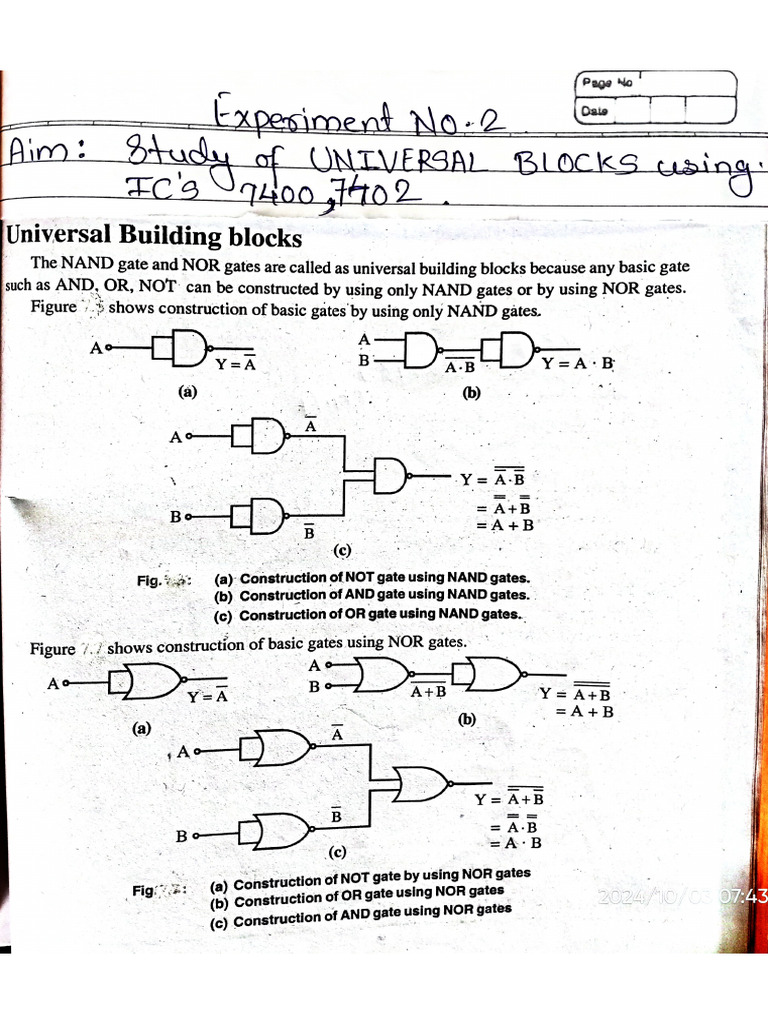 Page No
Date
Experiment No. 2
Aim: Study of UNIVERSAL BLOCKS using.
IC's 7400, 7402.
Universal Building blocks
The NAND gate and NOR gates are called as universal building blocks because any basic gate
such as AND, OR, NOT can be constructed by using only NAND gates or by using NOR gates.
Figure shows construction of basic gates by using only NAND gates.
A
Y = A̅
(a)
A
B
A̅·̅B̅
Y = A · B
(b)
A
A̅
B
B̅
Y = A̿·̿B̿
= A̿ + B̿
= A + B
(c)
Fig. : (a) Construction of NOT gate using NAND gates.
(b) Construction of AND gate using NAND gates.
(c) Construction of OR gate using NAND gates.
Figure 7.7 shows construction of basic gates using NOR gates.
A
Y = A̅
(a)
A
B
A̅+̅B̅
Y = A̿+̿B̿
= A + B
(b)
A
A̅
B
B̅
Y = A̿+̿B̿
= A̿·B̿
= A · B
(c)
Fig : (a) Construction of NOT gate by using NOR gates
(b) Construction of OR gate using NOR gates
(c) Construction of AND gate using NOR gates
2024/10/03 07:43